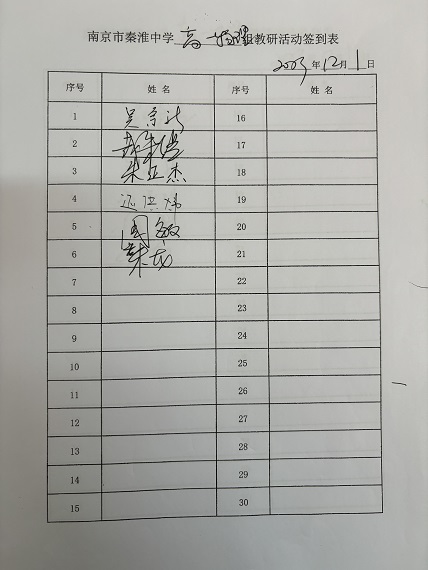 南京市秦淮中学 高一物理 组教研活动签到表
2023 年 12 月 1 日
序号 姓 名 序号 姓 名
1 16
2 17
3 朱亚杰 18
4 19
5 周敏 20
6 21
7 22
8 23
9 24
10 25
11 26
12 27
13 28
14 29
15 30